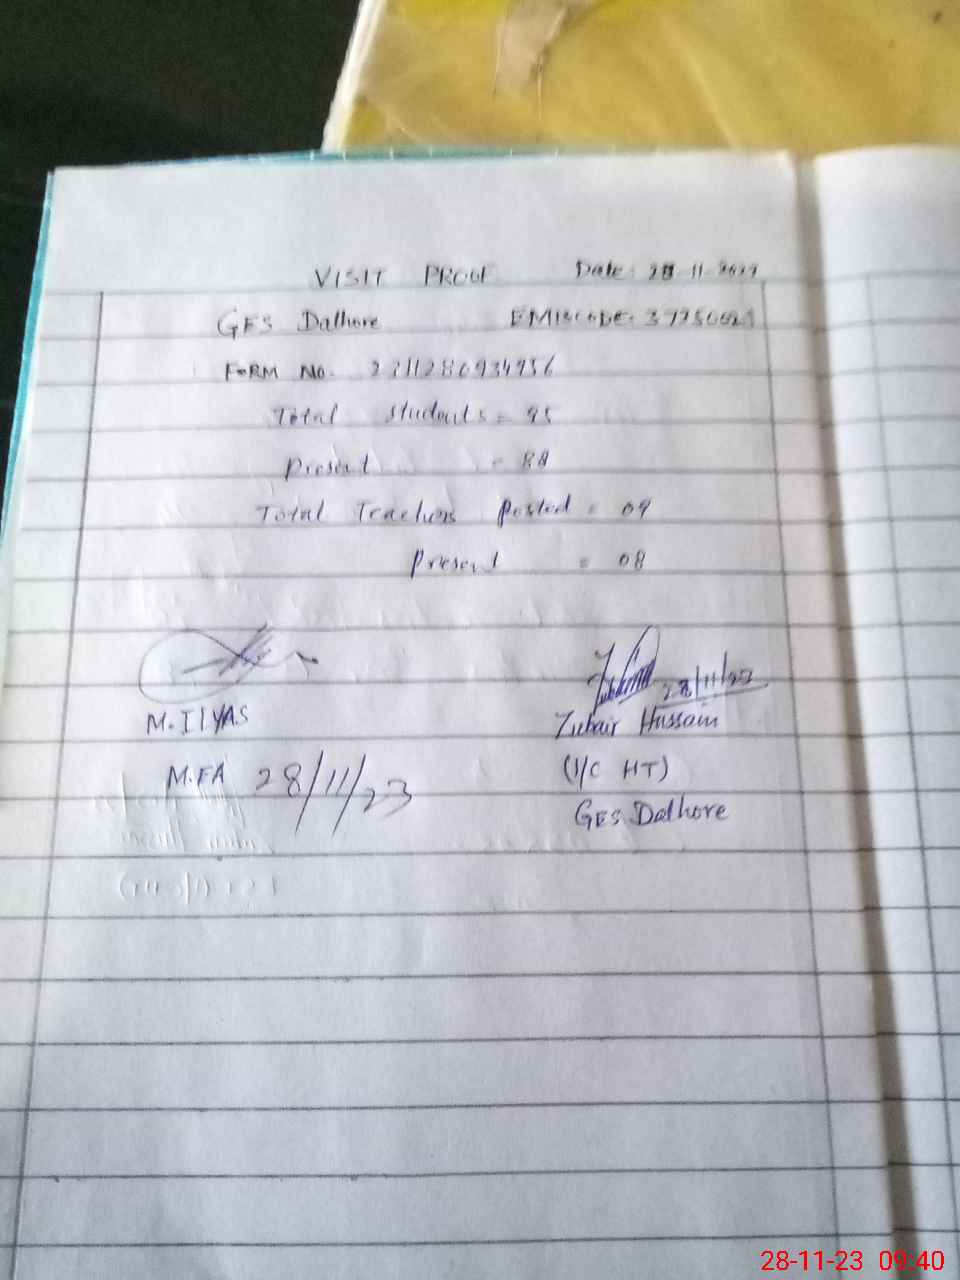 VISIT PROUF Date: 28-11-2023
GES Dalhore EMISCODE: 37250021
FORM NO.
Total students = 95
Present = 88
Total Teachers Posted = 09
Present = 08
28/11/23
M. ILYAS Zubair Hussain
M.EA 28/11/23 (I/C HT)
GES Dalhore
28-11-23 09:40